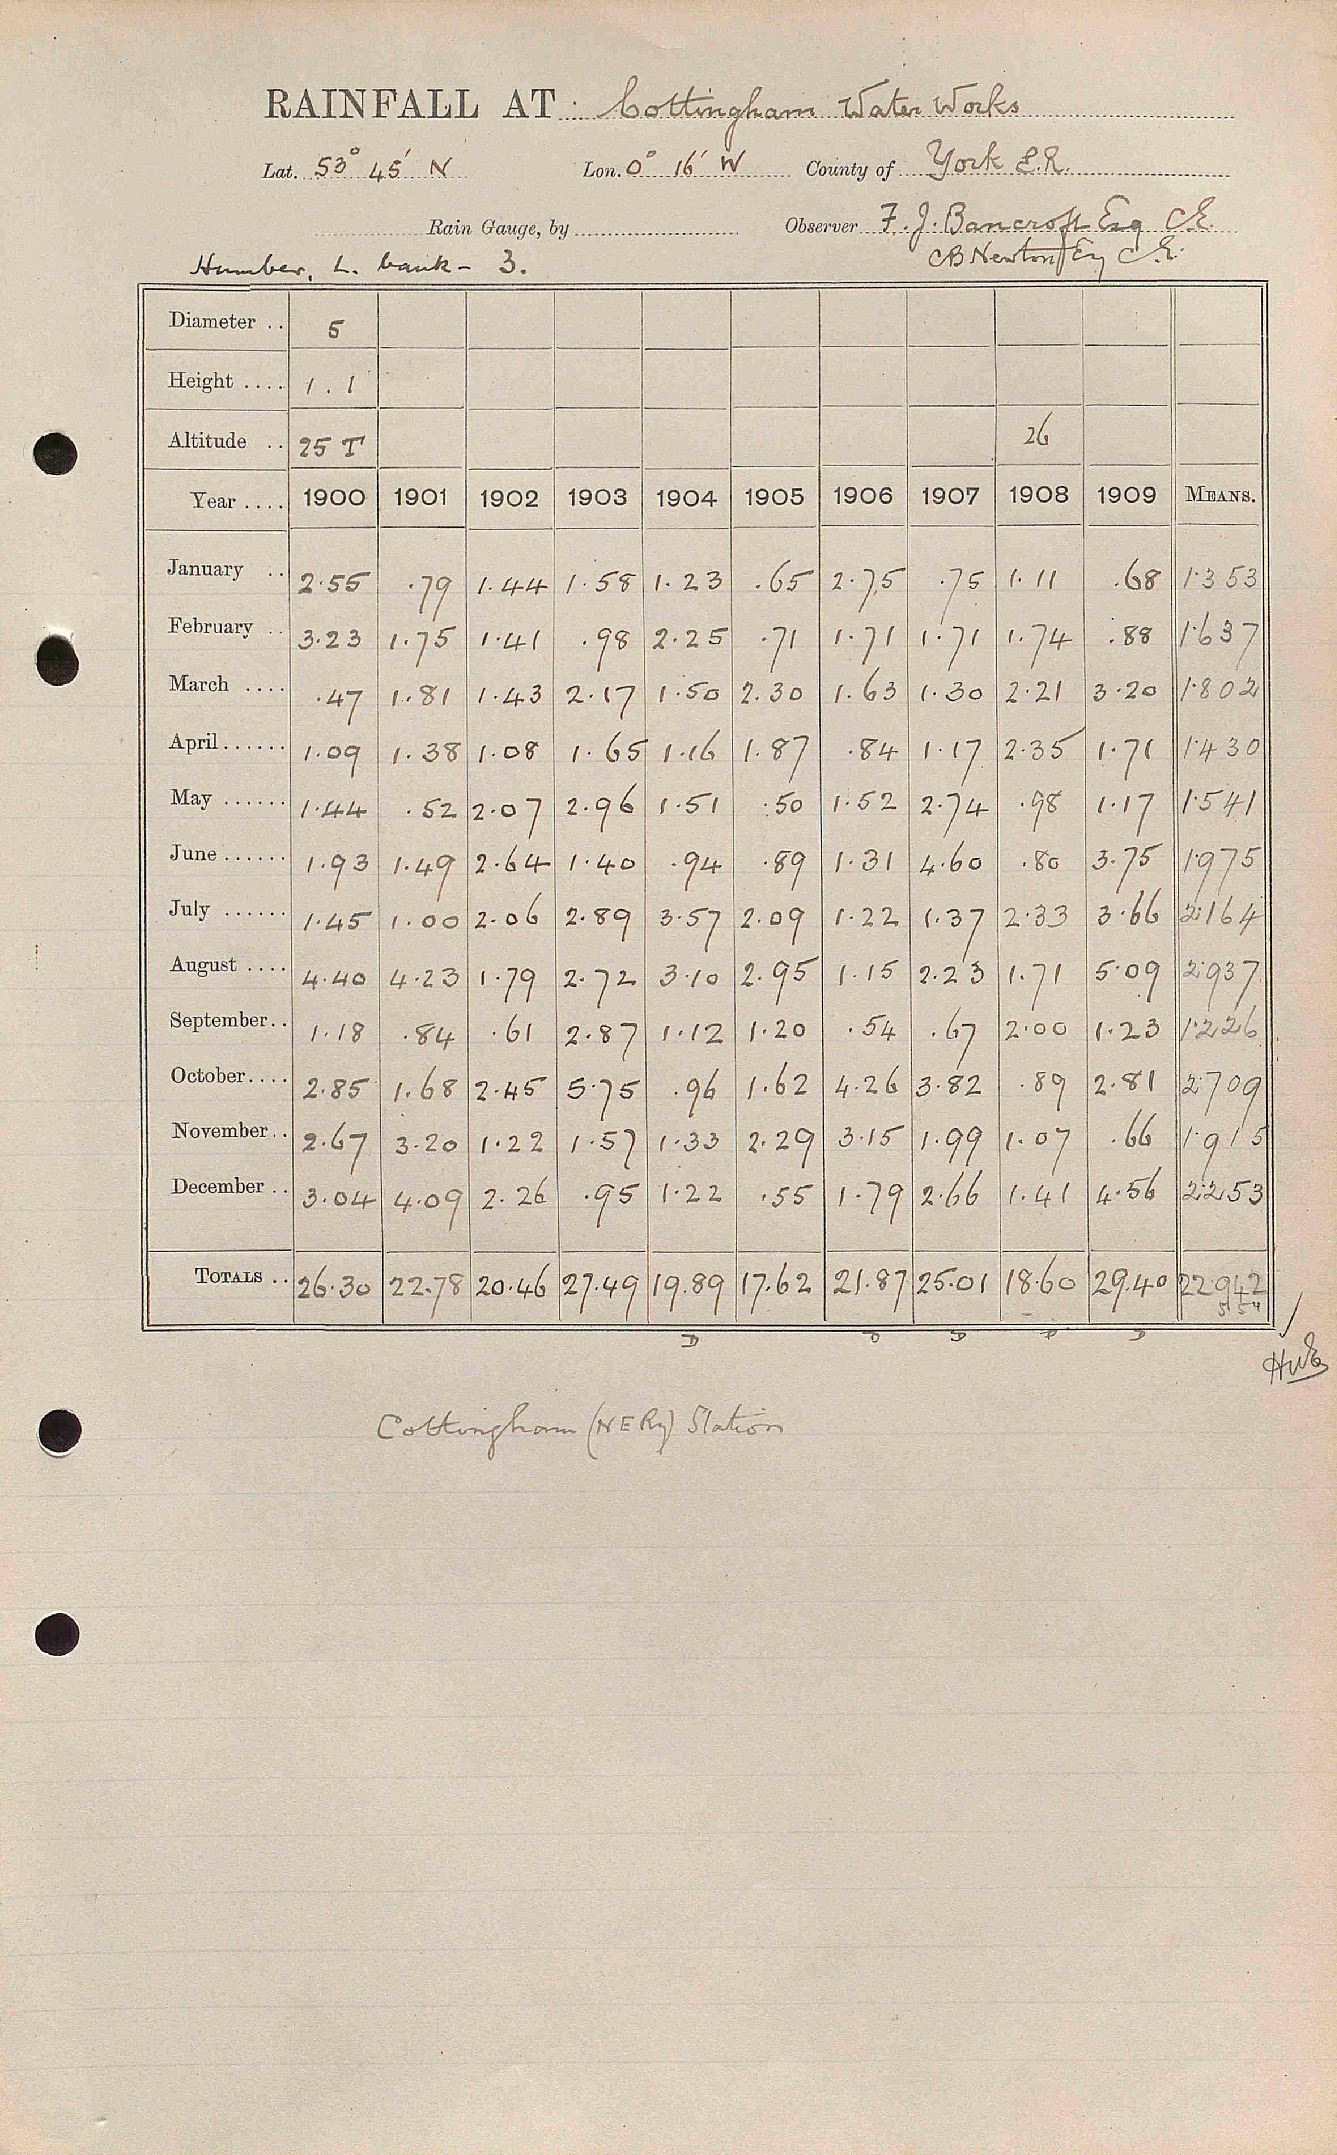 RAINFALL AT Cottingham Water Works
Lat. 53° 45' N Lon. 0° 16' W County of York E.R.
Rain Gauge, by Observer F. J. Bancroft Esq C.E.
Humber, L. bank - 3. CB Newton Esq C.E.
Diameter .. 5
Height .... 1.1
Altitude .. 25 T 26
Year .... 1900 1901 1902 1903 1904 1905 1906 1907 1908 1909 MEANS.
January .. 2.55 .79 1.44 1.58 1.23 .65 2.75 .75 1.11 .68 1.353
February .. 3.23 1.75 1.41 .98 2.25 .71 1.71 1.71 1.74 .88 1.637
March .... .47 1.81 1.43 2.17 1.50 2.30 1.63 1.30 2.21 3.20 1.802
April...... 1.09 1.38 1.08 1.65 1.16 1.87 .84 1.17 2.35 1.71 1.430
May ...... 1.44 .52 2.07 2.96 1.51 .50 1.52 2.74 .98 1.17 1.541
June ...... 1.93 1.49 2.64 1.40 .94 .89 1.31 4.60 .80 3.75 1.975
July ...... 1.45 1.00 2.06 2.89 3.57 2.09 1.22 1.37 2.33 3.66 2.164
August .... 4.40 4.23 1.79 2.72 3.10 2.95 1.15 2.23 1.71 5.09 2.937
September.. 1.18 .84 .61 2.87 1.12 1.20 .54 .67 2.00 1.23 1.226
October.... 2.85 1.68 2.45 5.75 .96 1.62 4.26 3.82 .89 2.81 2.709
November.. 2.67 3.20 1.22 1.57 1.33 2.29 3.15 1.99 1.07 .66 1.915
December .. 3.04 4.09 2.26 .95 1.22 .55 1.79 2.66 1.41 4.56 2.253
TOTALS .. 26.30 22.78 20.46 27.49 19.89 17.62 21.87 25.01 18.60 29.40 22.942
D D D D D
Cottingham (NERy) Station